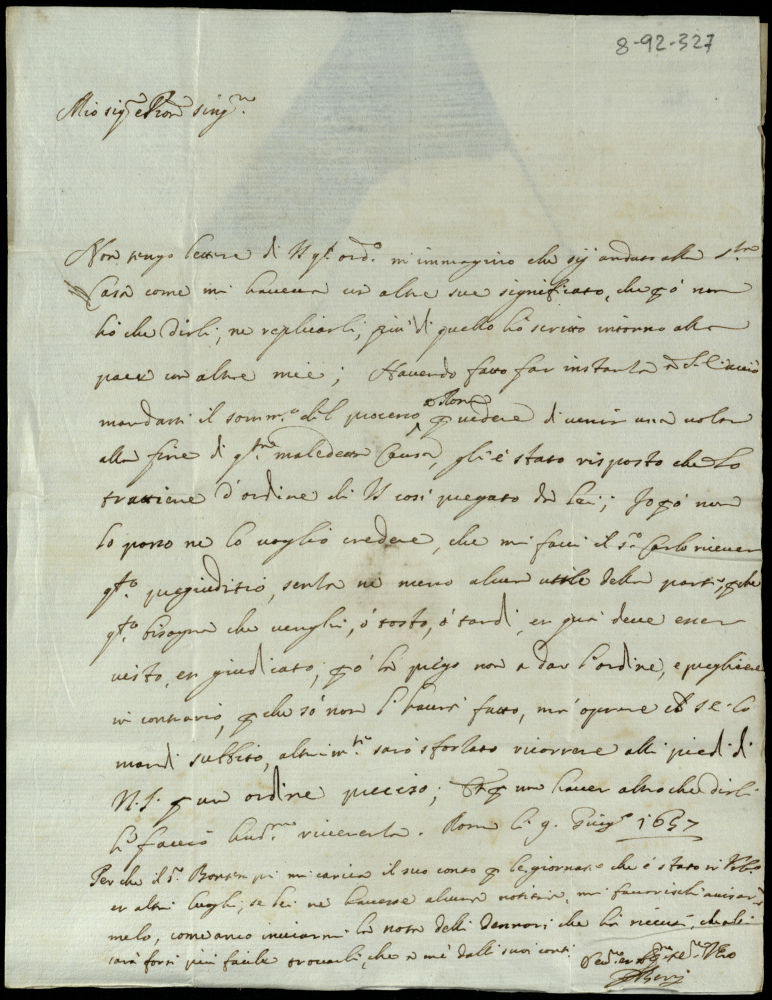 8-92-327
Mio sig.re e Pron sing.re
Non tengo lettere di VS q.to ord.o m'immagino che sij andato alla S.ta
Casa come mi haveva in altre sue significato, che però non
hò che dirli, ne replicarli, più di quello hò scritto intorno alla
pace con altre mie; Havendo fatto far instanza à acciò
mandassi il somm.o del processo à Roma p vedere di venir una volta
alla fine di q.ta maledetta Causa, gli è stato risposto che lo
trattiene d'ordine di VS così pregato da lei; Io però non
lo posso ne lo voglio credere, che mi facci il S.r Carlo ricever
q.to pregiuditio, senza ne meno alcun utile della parte, p che
q.to bisogna che venghi, ò tosto, ò tardi, et quà deve esser
visto, et giudicato, però la prego non à dar l'ordine, e preghiere
in contrario, p che sò non l'haverà fatto, mà operare che se lo
mandi subbito, altrim.te sarò sforzato ricorrere alli piedi di
N.S. p un ordine preciso; Et p non haver altro che dirli
li faccio hum.ma riverenza. Roma li 9. Giug.o 1657
Perche il S.r mi carica il suo conto p le giornate che è stato in
et altri luoghi, se lei ne havesse alcuna notitia, mi favorischi avisar
melo, come anco inviarmi la nota delli dennari che hà ricevuti, che à lei
sarà forsi più facile trovarli, che à mè dalli suoi conti